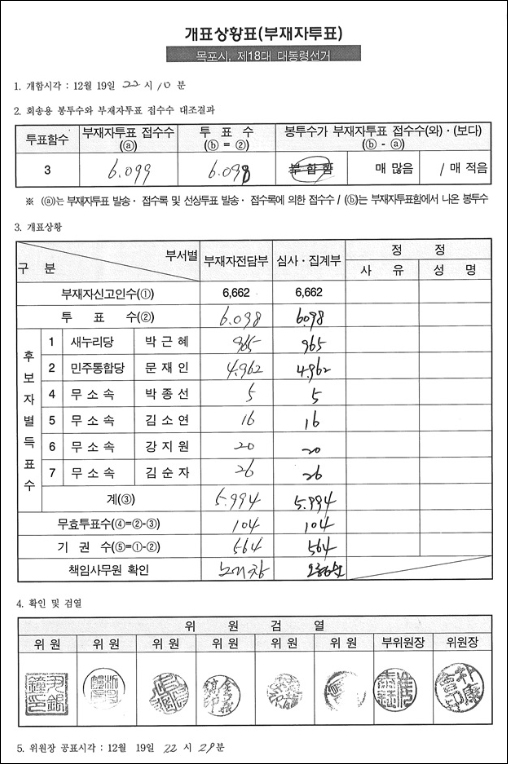 개표상황표(부재자투표)
목포시, 제18대 대통령선거
1. 개함시각 : 12월 19일 22 시 10 분
2. 회송용 봉투수와 부재자투표 접수수 대조결과
투표함수 부재자투표 접수수 (ⓐ) 투 표 수 (ⓑ = ②) 봉투수가 부재자투표 접수수(와)·(보다) (ⓑ - ⓐ)
3 6.099 6.098 부합함 매 많음 1 매 적음
※ (ⓐ)는 부재자투표 발송· 접수록 및 선상투표 발송· 접수록에 의한 접수수 / (ⓑ)는 부재자투표함에서 나온 봉투수
3. 개표상황
구 분 부서별 부재자전담부 심사·집계부 정 정
사 유 성 명
부재자신고인수(①) 6,662 6,662
투 표 수(②) 6.098 6098
후보자별득표수
1 새누리당 박 근 혜 965 965
2 민주통합당 문 재 인 4.962 4.962
4 무 소 속 박 종 선 5 5
5 무 소 속 김 소 연 16 16
6 무 소 속 강 지 원 20 20
7 무 소 속 김 순 자 26 26
계(③) 5.994 5.994
무효투표수(④=②-③) 104 104
기 권 수(⑤=①-②) 564 564
책임사무원 확인
4. 확인 및 검열
위 원 검 열
위 원 위 원 위 원 위 원 위 원 위 원 부위원장 위원장
5. 위원장 공표시각 : 12월 19일 22 시 29분